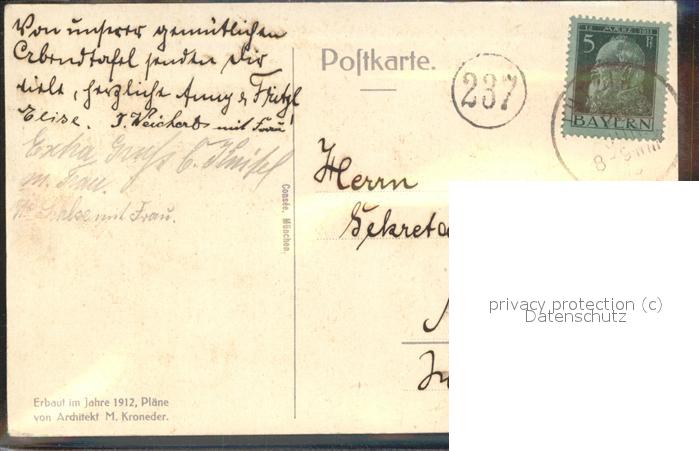 Von unserer gemütlichen
Abendtafel senden Dir
viele, herzliche Anny & Fritzl
Elise. J. Weichert mit Frau!
Extra Gruß E.
m. Frau.
mit Frau.
Postkarte.
237
12. MÄRZ 1911
5 Pf
BAYERN
8-9
Herrn
Sekretä
Consée, München.
Erbaut im Jahre 1912, Pläne
von Architekt M. Kroneder.
privacy protection (c)
Datenschutz